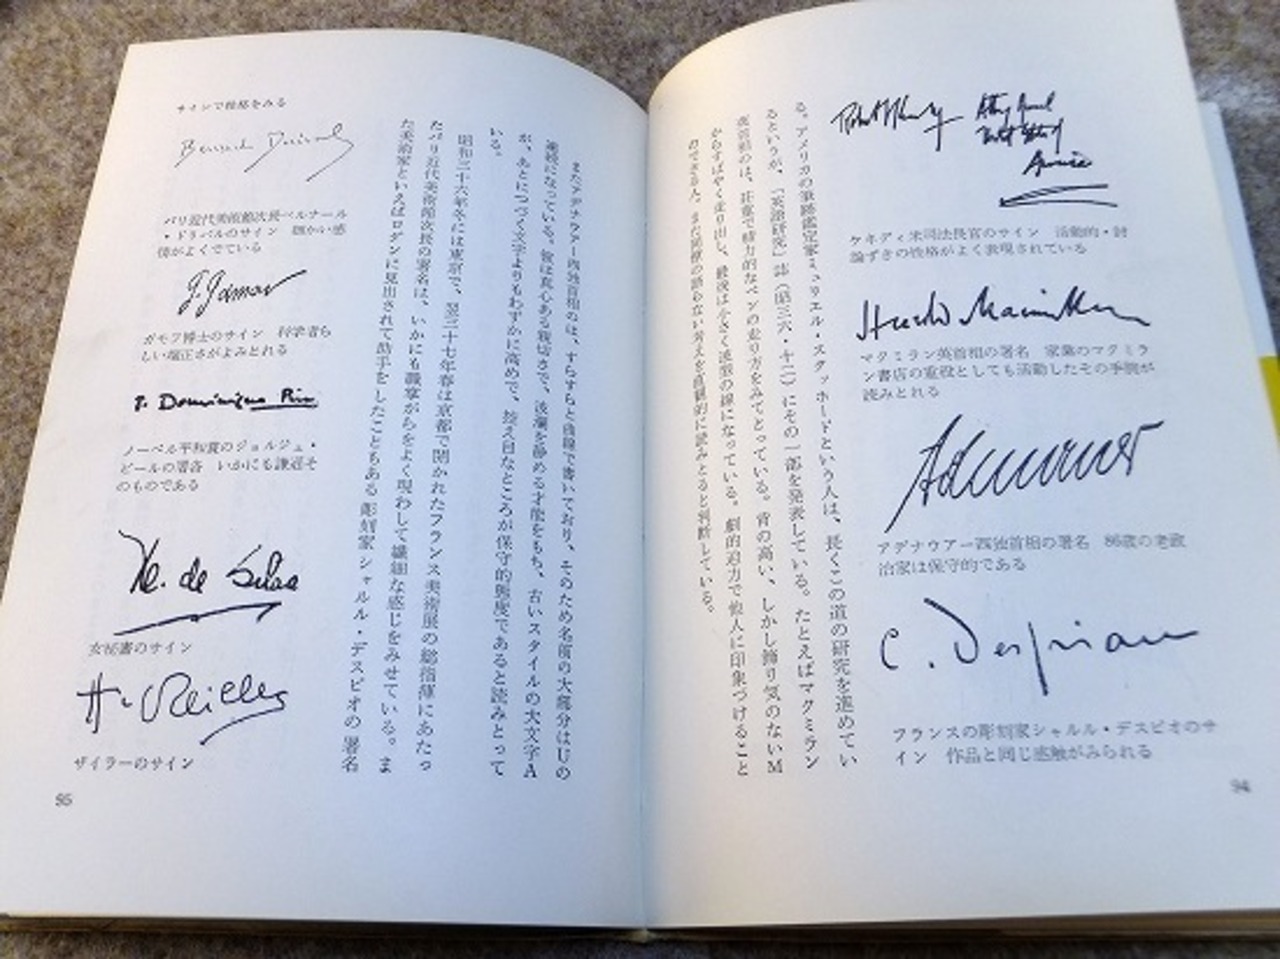 ケネディ米司法長官のサイン 活動的・討
論ずきの性格がよく表現されている
マクミラン英首相の署名 家業のマクミラ
ン書店の重役としても活動したその手腕が
読みとれる
アデナウアー西独首相の署名 86歳の老政
治家は保守的である
C. Despiau
フランスの彫刻家シャルル・デスピオのサ
イン 作品と同じ感触がみられる
る。アメリカの筆跡鑑定家ミュリエル・スタッフォードという人は、長くこの道の研究を進めてい
るというが、「英語研究」誌(昭三六・十二)にその一部を発表している。たとえばマクミラン
英首相のは、荘重で精力的なペンの走り方をみてとっている。背の高い、しかし飾り気のないM
からすばやく走り出し、最後は小さく波型の線になっている。劇的迫力で他人に印象づけること
のできる人、また同僚の語らない考えを直観的に読みとると判断している。
94
またアデナウアー西独首相のは、すらすらと曲線で書いており、そのため名前の大部分はUの
連続になっている。彼は真心ある親切さで、波瀾を静める才能をもち、古いスタイルの大文字A
が、あとにつづく文字よりもわずかに高めで、控え目なところが保守的態度であると読みとって
いる。
昭和三十六年冬には東京で、翌三十七年春は京都で開かれたフランス美術展の総指揮にあたっ
たパリ近代美術館次長の署名は、いかにも職掌がらをよく現わして繊細な感じをみせている。ま
た美術家といえばロダンに見出されて助手をしたこともある彫刻家シャルル・デスピオの署名
サインで性格をみる
パリ近代美術館次長ベルナール
・ドリバルのサイン 細かい感
情がよくでている
ガモフ博士のサイン 科学者ら
しい端正さがよみとれる
ノーベル平和賞のジョルジュ・
ピールの署名 いかにも謙遜そ
のものである
女秘書のサイン
ザイラーのサイン
95